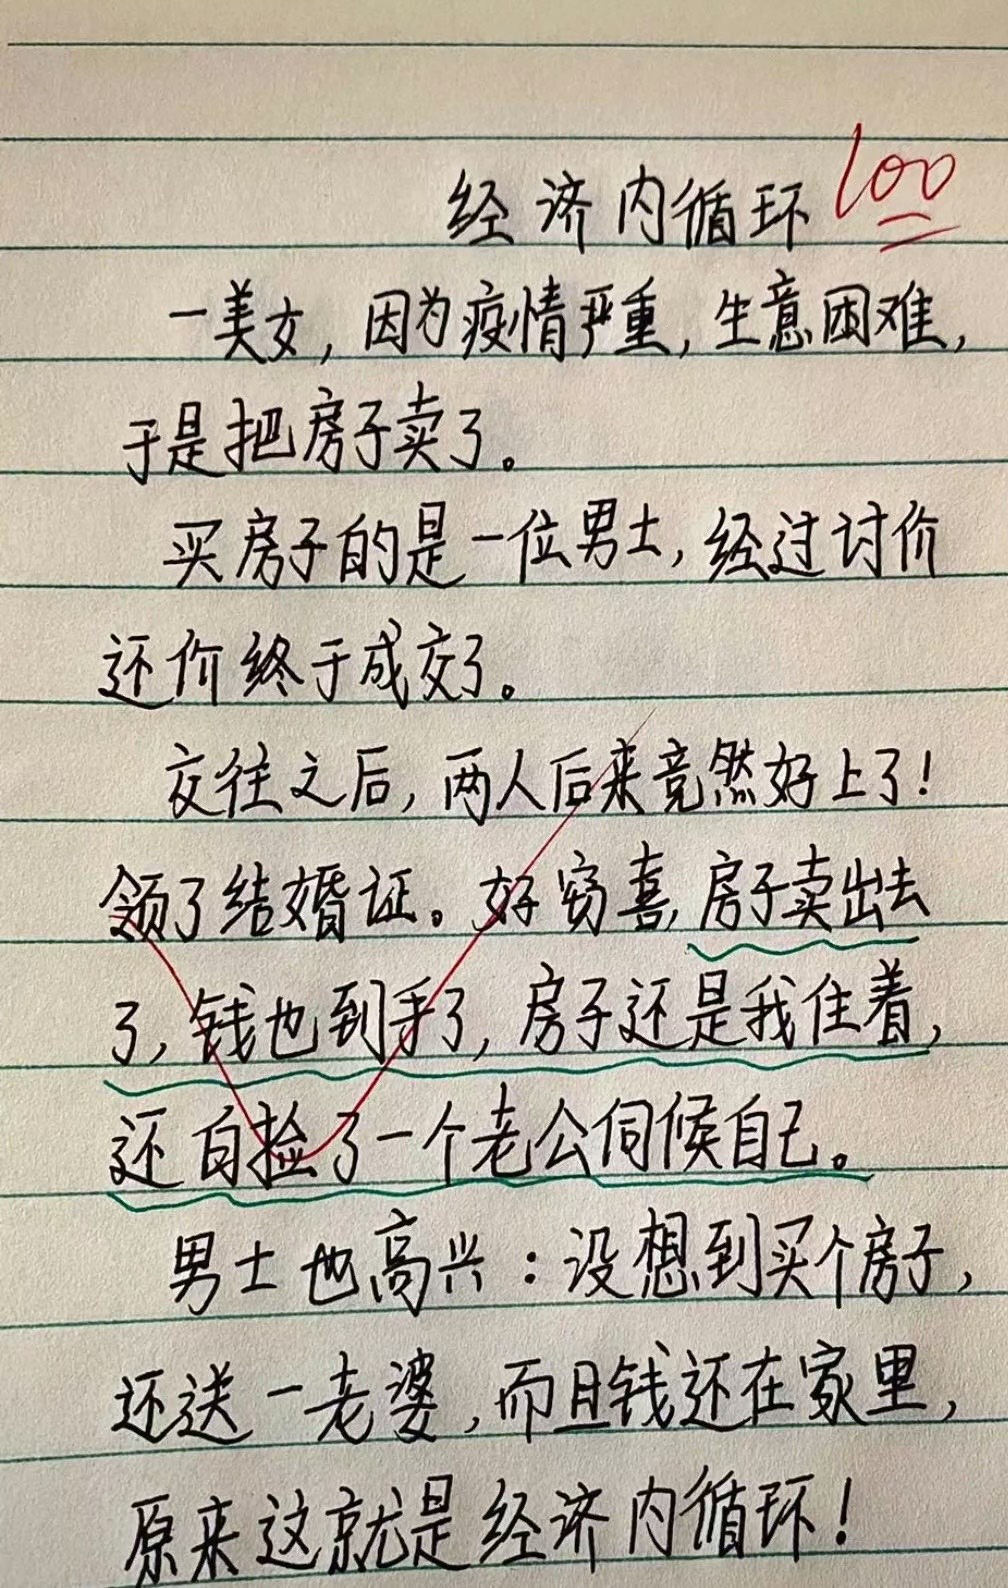 经济内循环 100
一美女，因为疫情严重，生意困难，
于是把房子卖了。
买房子的是一位男士，经过讨价
还价终于成交了。
交往之后，两人后来竟然好上了！
领了结婚证。好窃喜，房子卖出去
了，钱也到手了，房子还是我住着，
还白捡了一个老公伺候自己。
男士也高兴：没想到买个房子，
还送一老婆，而且钱还在家里，
原来这就是经济内循环！